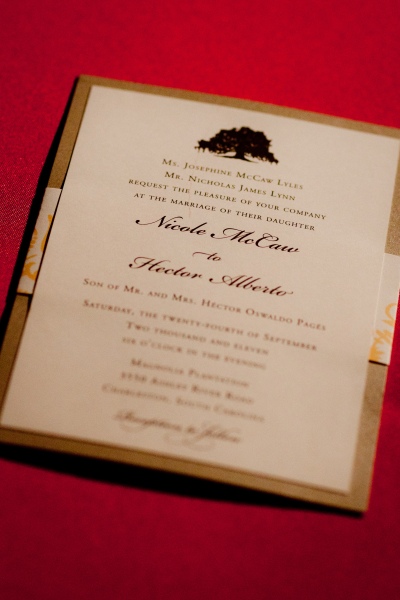 Ms. Josephine McCaw Lyles
Mr. Nicholas James Lynn
request the pleasure of your company
at the marriage of their daughter
Nicole McCaw
to
Hector Alberto
Son of Mr. and Mrs. Hector Oswaldo Pages
Saturday, the twenty-fourth of September
Two thousand and eleven
o'clock in the evening
Magnolia Plantation
Ashley River Road
Charleston, South Carolina
Reception to follow